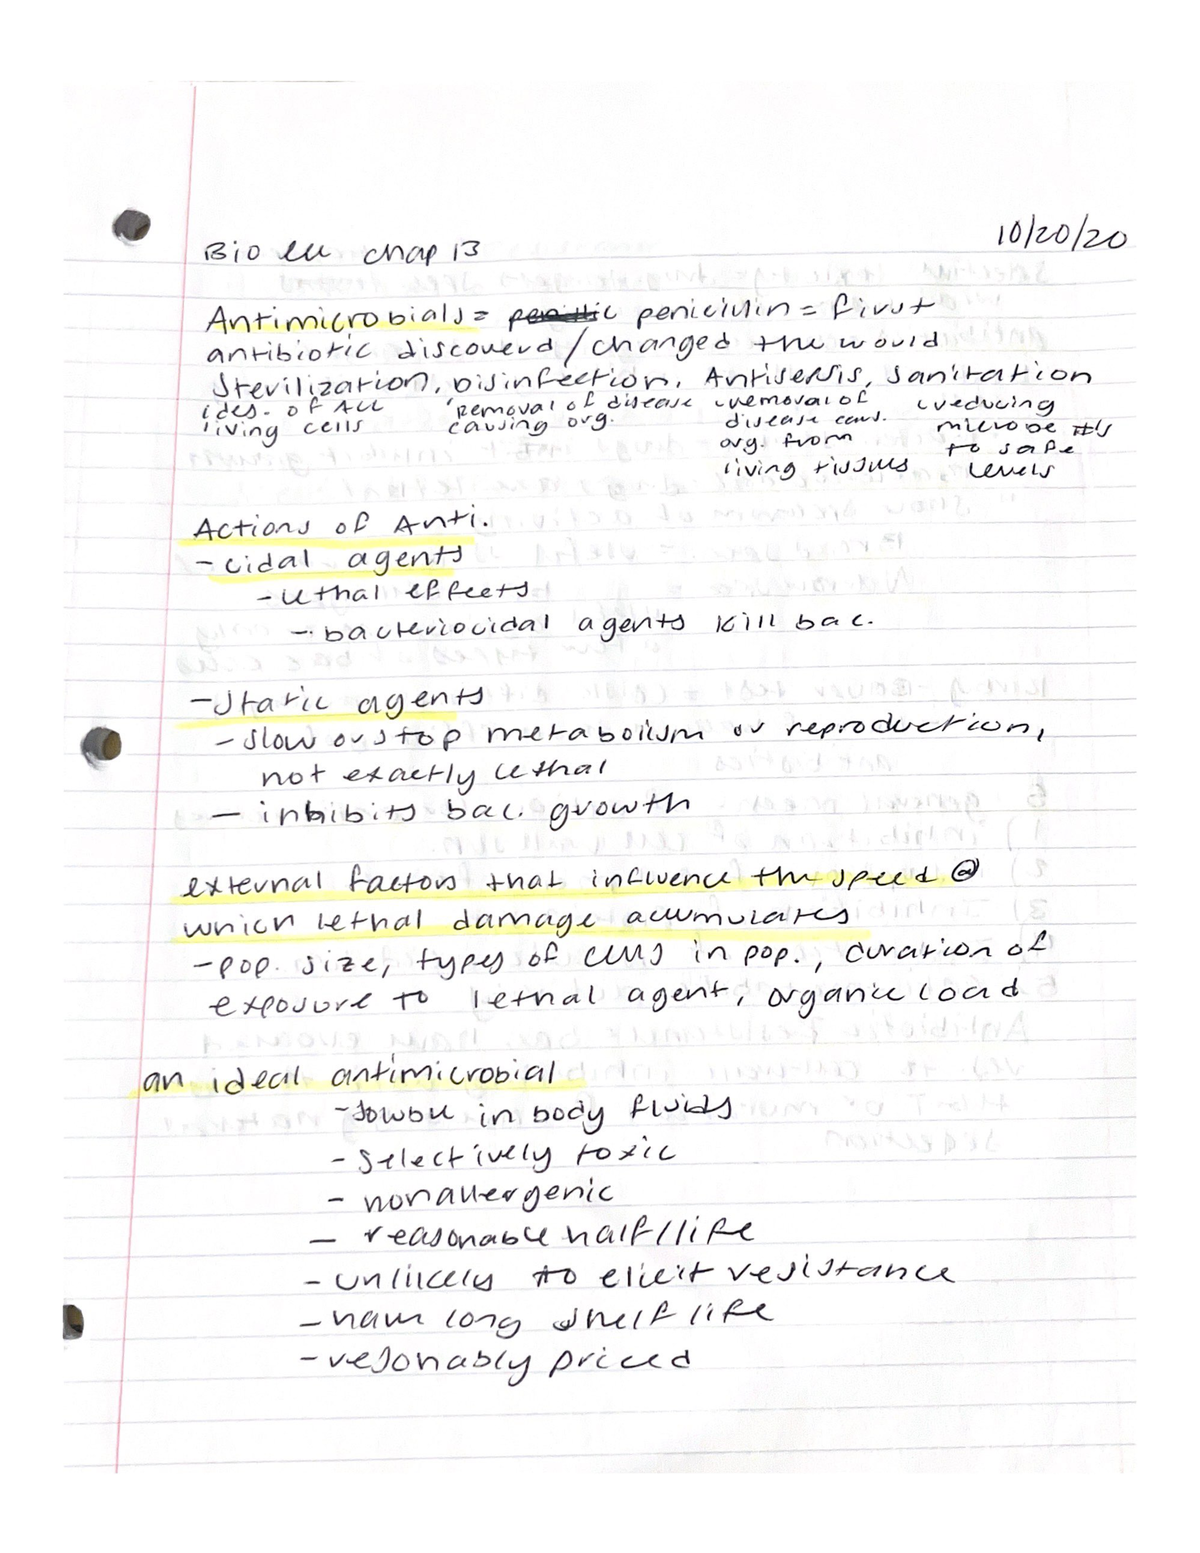 10/20/20
Bio lec chap 13
Antimicrobials = penicillin = first
antibiotic discoverd / changed the world
Sterilization, Disinfection, Antisepsis, Sanitation
(des. of ALL living cells
removal of disease causing org.
removal of disease caus. org. from living tissues
(reducing microbe #'s to safe levels
Actions of Anti.
- cidal agents
- lethal effects
- bacteriocidal agents kill bac.
- static agents
- slow or stop metabolism or reproduction,
not exactly lethal
- inhibits bac. growth
external factors that influence the speed @
which lethal damage accumulates
- pop. size, types of cells in pop., duration of
exposure to lethal agent, organic load
an ideal antimicrobial
- in body fluids
- selectively toxic
- nonallergenic
- reasonable half/life
- unlikely to elicit resistance
- have long shelf life
- resonably priced